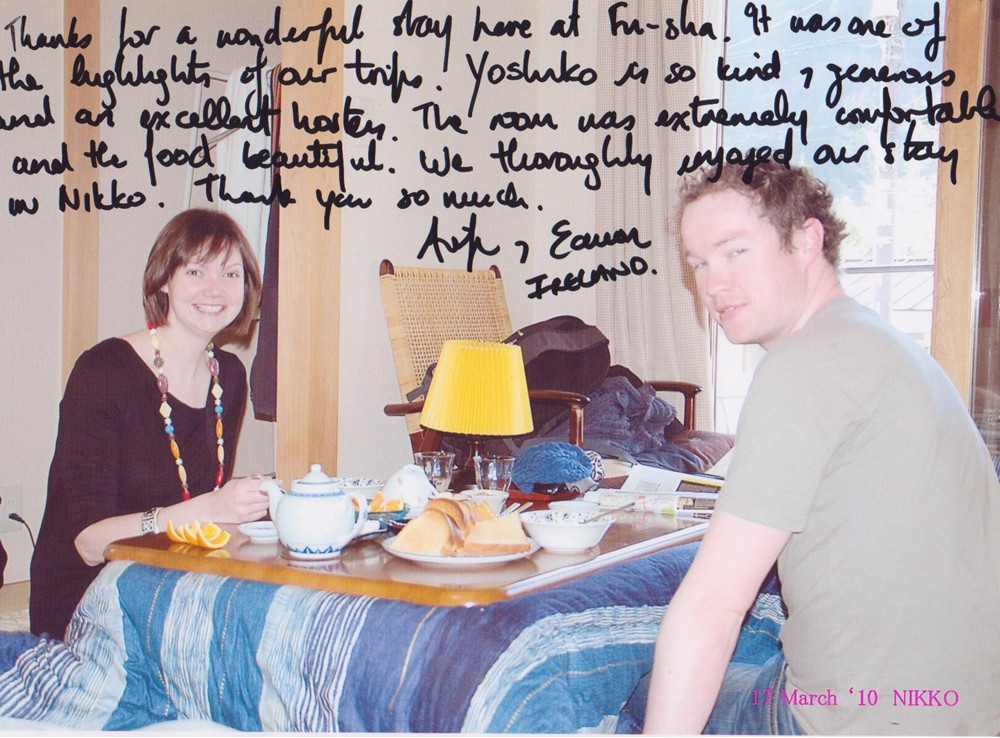 Thanks for a wonderful stay here at Fu-sha. It was one of
the highlights of our trip. Yoshiko is so kind, generous
and an excellent hostess. The room was extremely comfortable
and the food beautiful. We thoroughly enjoyed our stay
in Nikko. Thank you so much.
, Eamon
IRELAND.
17 March '10 NIKKO